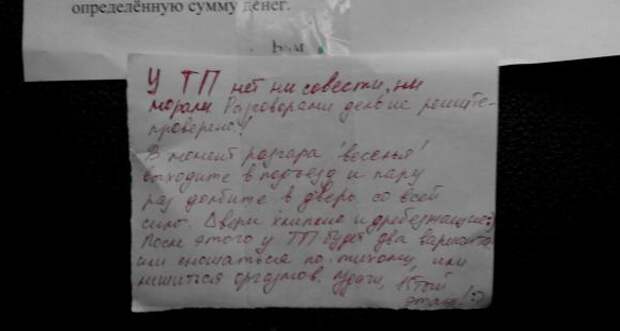 определённую сумму денег.
У ТП нет ни совести, ни
морали. Разговорами дело не решите-
проверено!
В момент разгара "веселья"
выходите в подъезд и пару
раз долбите в дверь со всей
силы. Двери хлипкие и дребезжащие
После этого у ТП будет два варианта
или сношаться по-тихому, или
лишиться оргазмов. Удачи,
этаж! :)